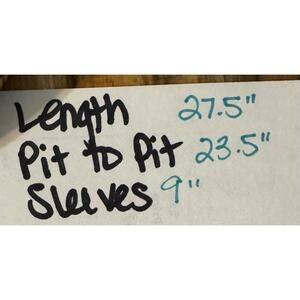 Length 27.5"
Pit to Pit 23.5"
Sleeves 9"